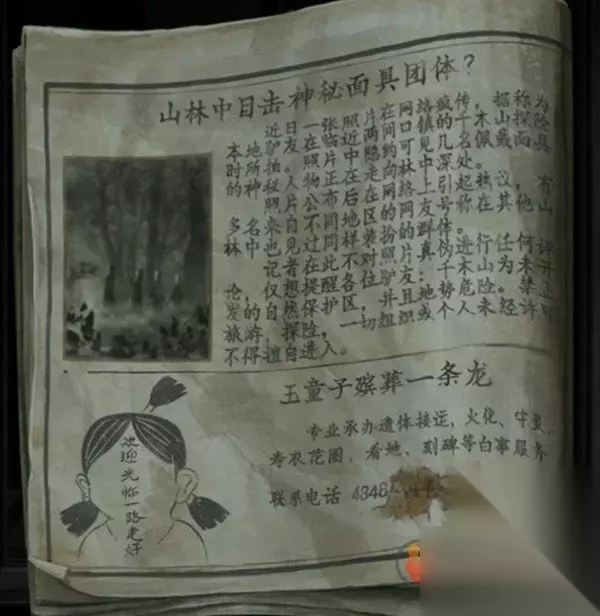 山林中目击神秘面具团体？
近日一张照片在网络疯传，据称为
本地驴友在临近两间口镇的千木山探险
时所拍照片中隐约可见几名佩戴面具
的神秘人物正在走向林中深处。
照片公布后在网络上引起热议，有
多名来自不同地区的网友号称在其他山
林中也见过同样装扮的群体。
记者在此不对照片真伪进行任何评
论，仅想提醒各位驴友：千木山为未开
发的自然保护区，并且地势危险。禁止
旅游，探险，一切组织或个人未经许可
不得擅自进入。
五童子殡葬一条龙
专业承办遗体接运，火化、守灵、
寿衣花圈、看地、刻碑等白事服务
联系电话 4848
欢迎光临一路走好